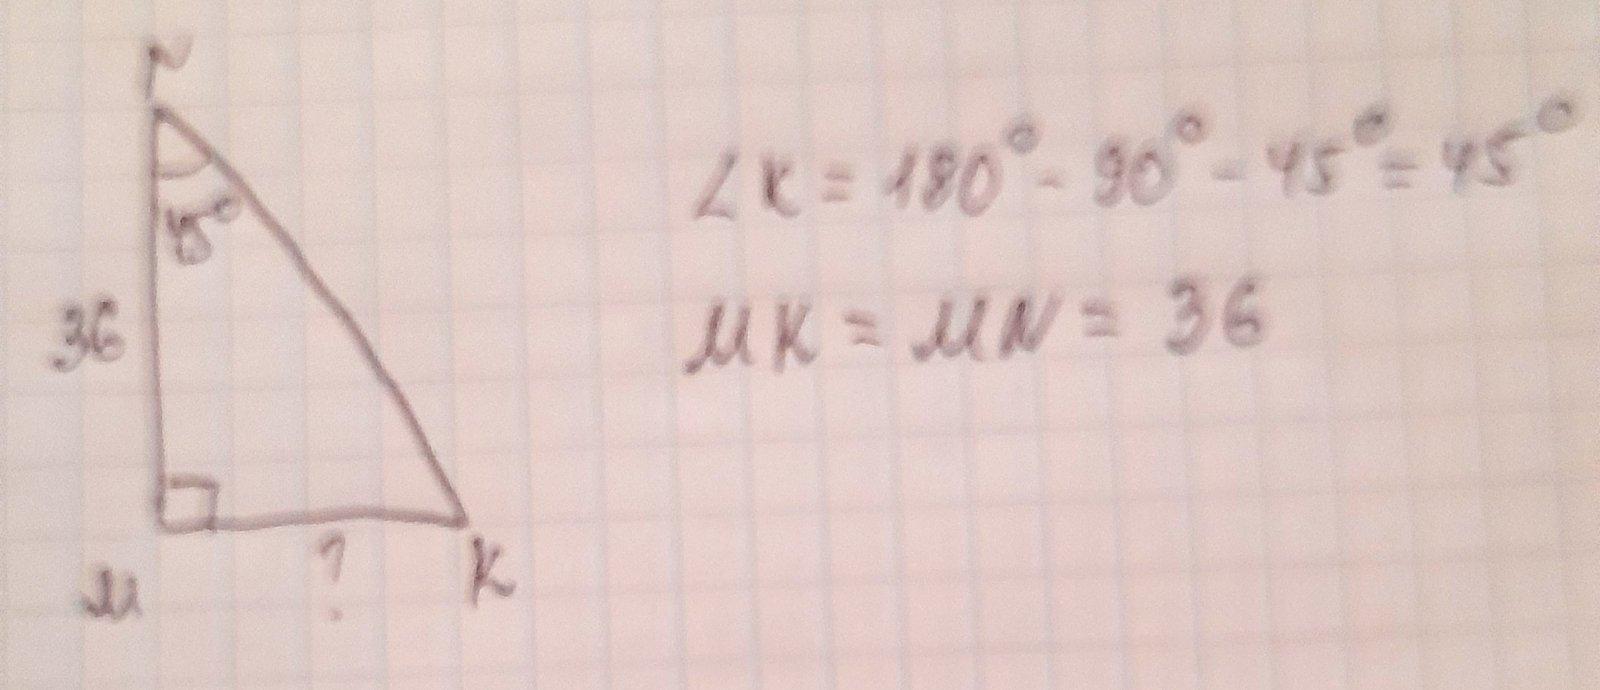 N
45°
36
M
?
K
∠K = 180° - 90° - 45° = 45°
MK = MN = 36